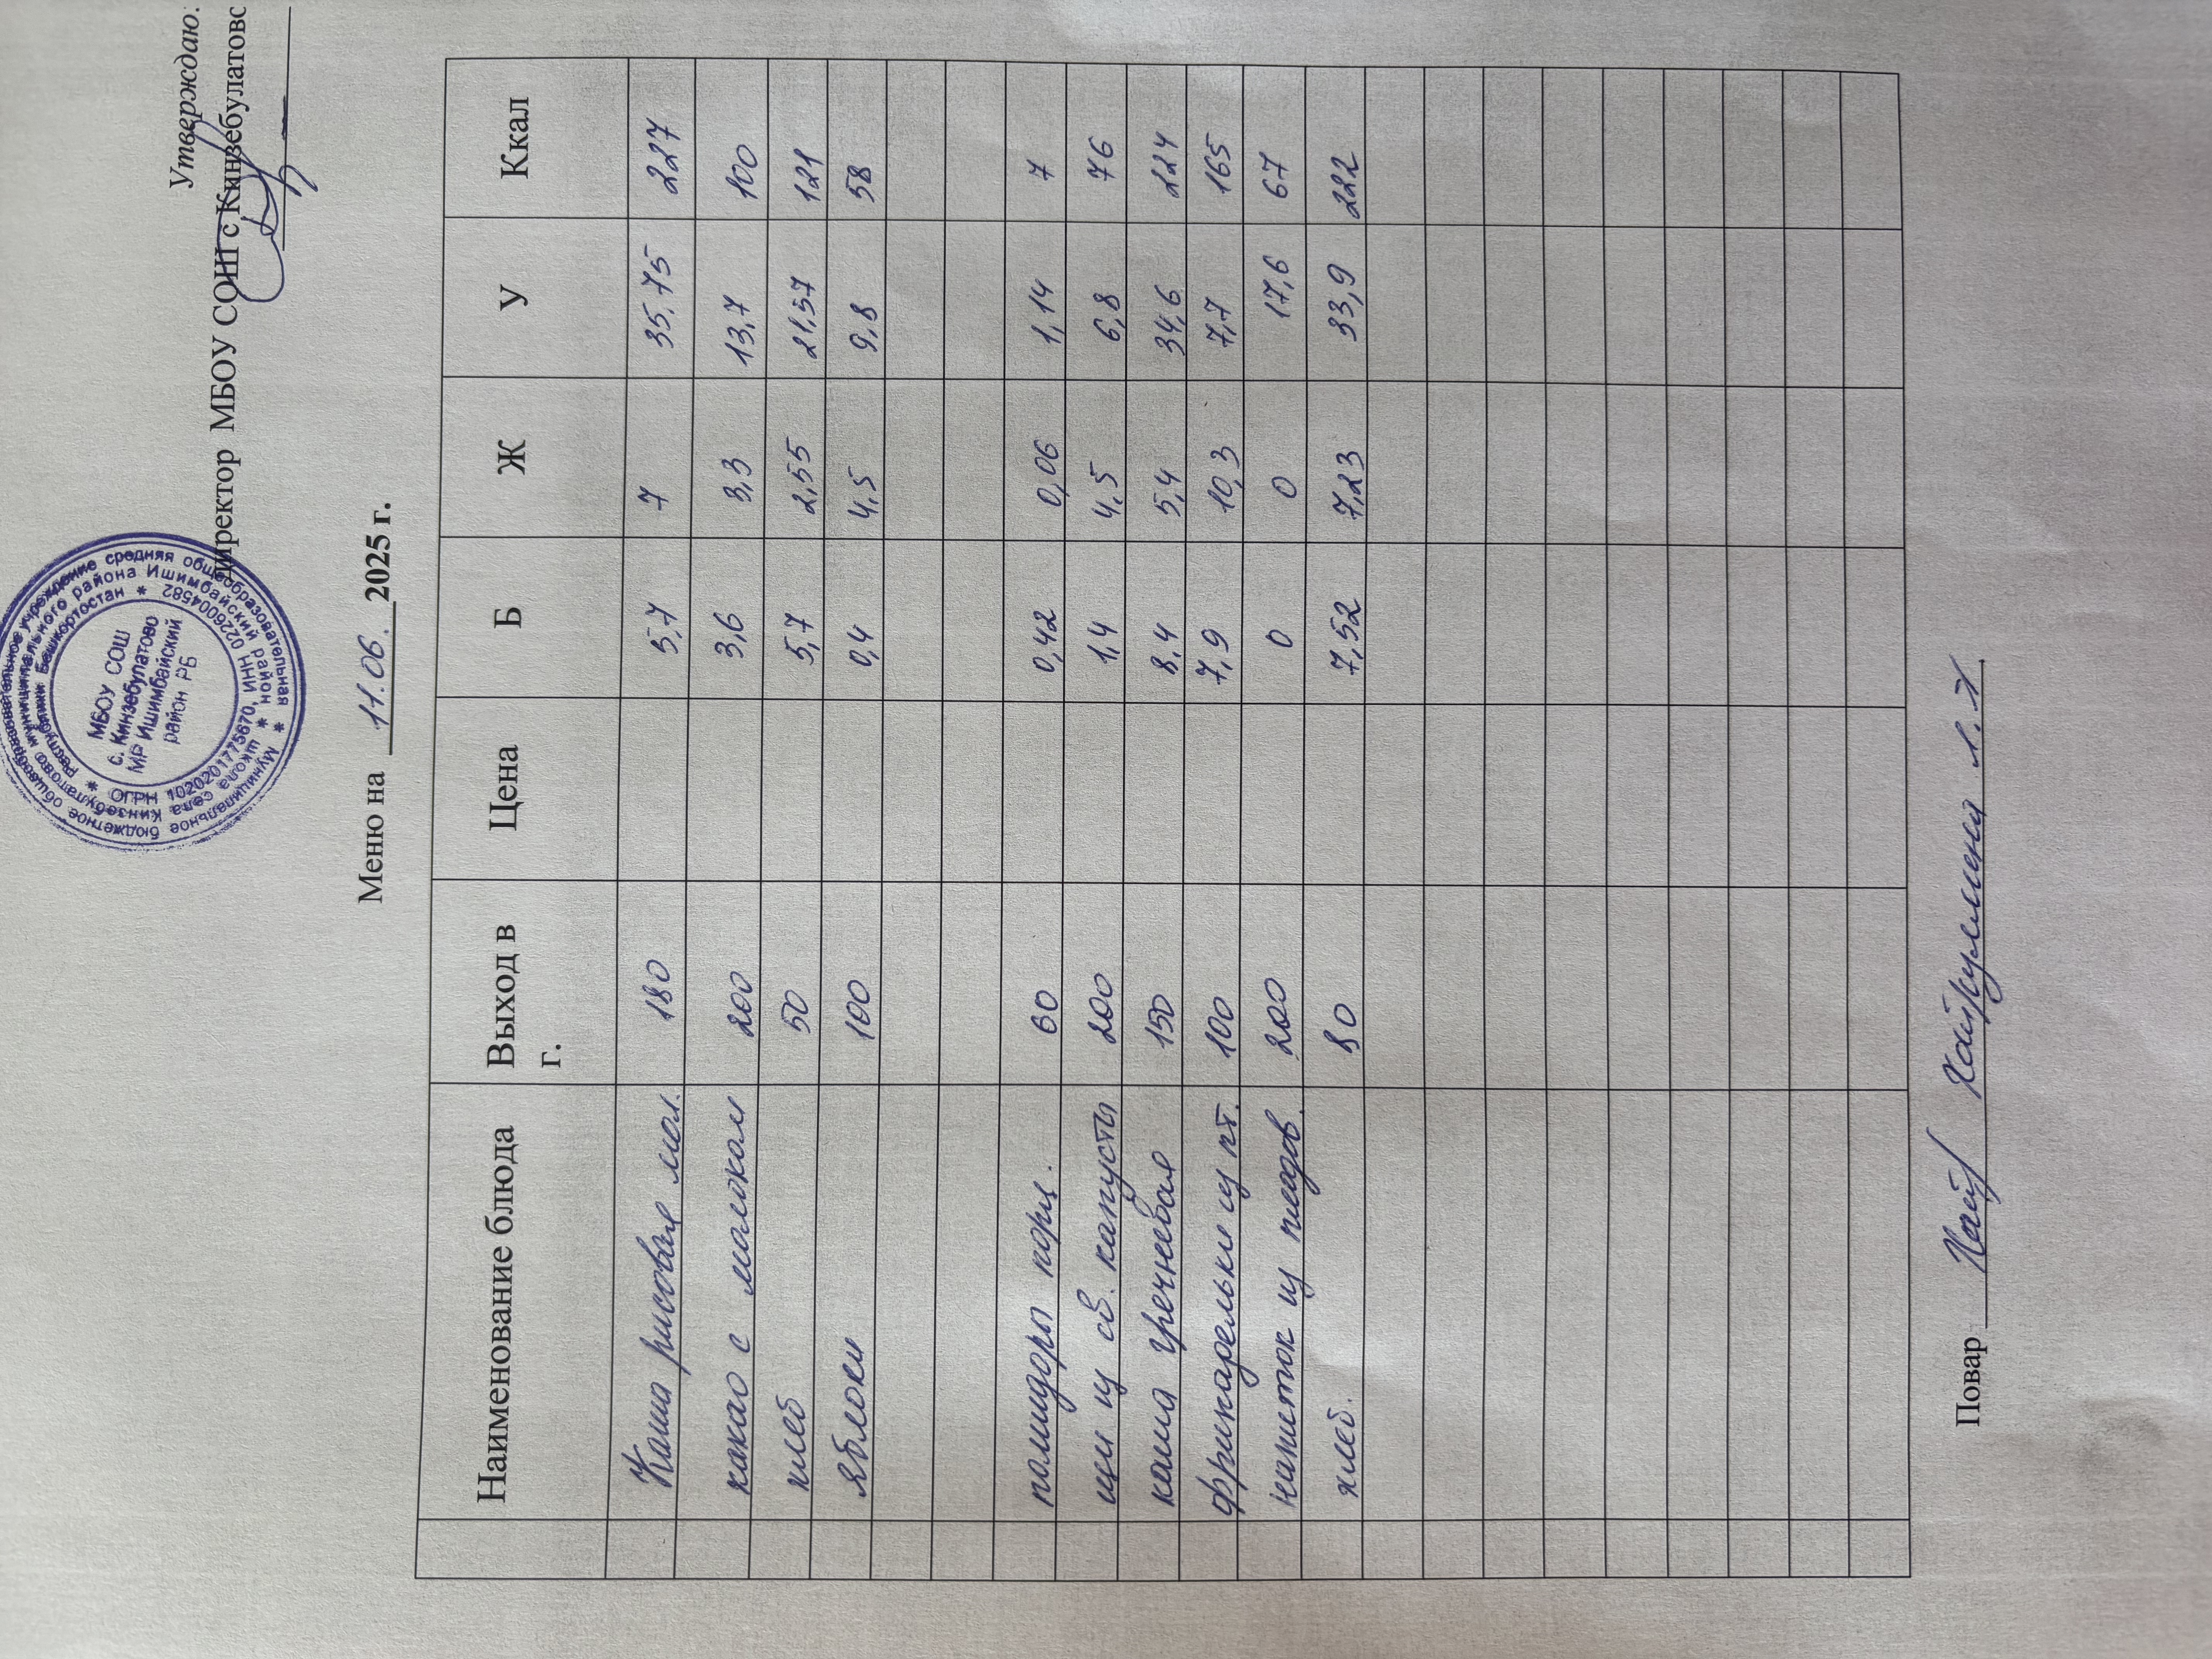 Утверждаю:
Директор МБОУ СОШ с Кинзебулатово
МБОУ СОШ
с. Кинзебулатово
МР Ишимбайский
район РБ
* ОГРН 1020201775670, ИНН 0226004582 *
Меню на 11.06. 2025 г.
Наименование блюда Выход в г. Цена Б Ж У Ккал
Каша рисовая мол. 180 5,7 7 35,75 227
какао с молоком 200 3,6 3,3 13,7 100
хлеб 50 5,7 2,55 21,57 121
яблоки 100 0,4 4,5 9,8 58
помидоры порц. 60 0,42 0,06 1,14 7
щи из св. капусты 200 1,4 4,5 6,8 76
каша гречневая 150 8,4 5,4 34,6 224
фрикадельки из пт. 100 7,9 10,3 7,7 165
напиток из плодов. 200 0 0 17,6 67
хлеб. 80 7,52 7,23 33,9 222
Повар Хайруллина Л.Х.